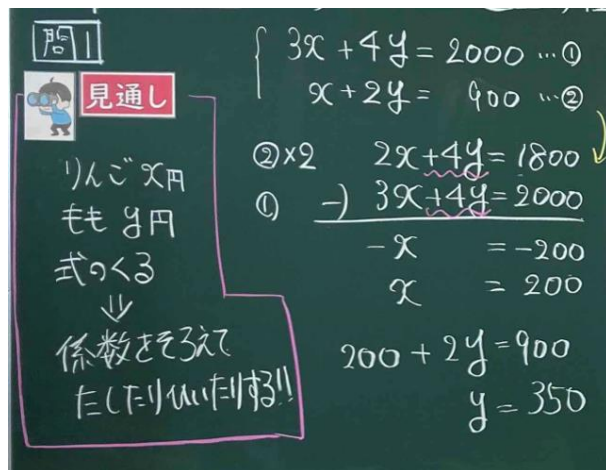 問1
見通し
りんごx円
ももy円
式つくる
⇓
係数をそろえて
たしたりひいたりする!!
3x+4y=2000…①
x+2y=900…②
②×2 2x+4y=1800
① −) 3x+4y=2000
−x =−200
x =200
200+2y=900
y=350